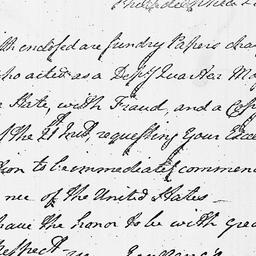 th enclosed are sundry Papers cha
ho acted as a Depy Quarter Ma
State, with Fraud, and a Cop
the 21 Inst, requesting Your Exce
tion to be immediately commenc
nce of the United States —
have the honor to be with grea
respect